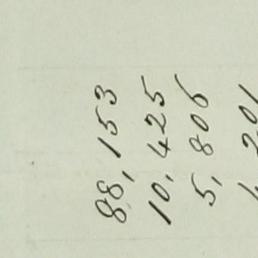 88,153
10,425
5,806